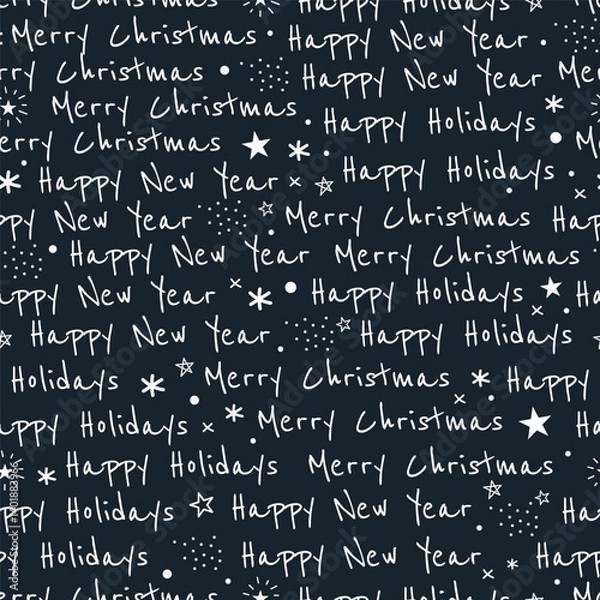 Merry Christmas Happy New Year
rry Christmas Happy New Year Me
Merry Christmas Happy Holidays
erry Christmas M
Happy New Year Happy Holidays
ppy New Year Merry Christmas Hap
Happy New Year Merry Christmas
appy New Year Happy Holidays Ha
Happy New Year Happy Holidays
Holidays Merry Christmas Happy
appy Holidays Merry Christmas Ha
Happy Holidays Merry Christmas
ppy Holidays Happy New Year Ha
Holidays Happy New Year Happy
Merry Christmas Happy New Year
Adobe Stock